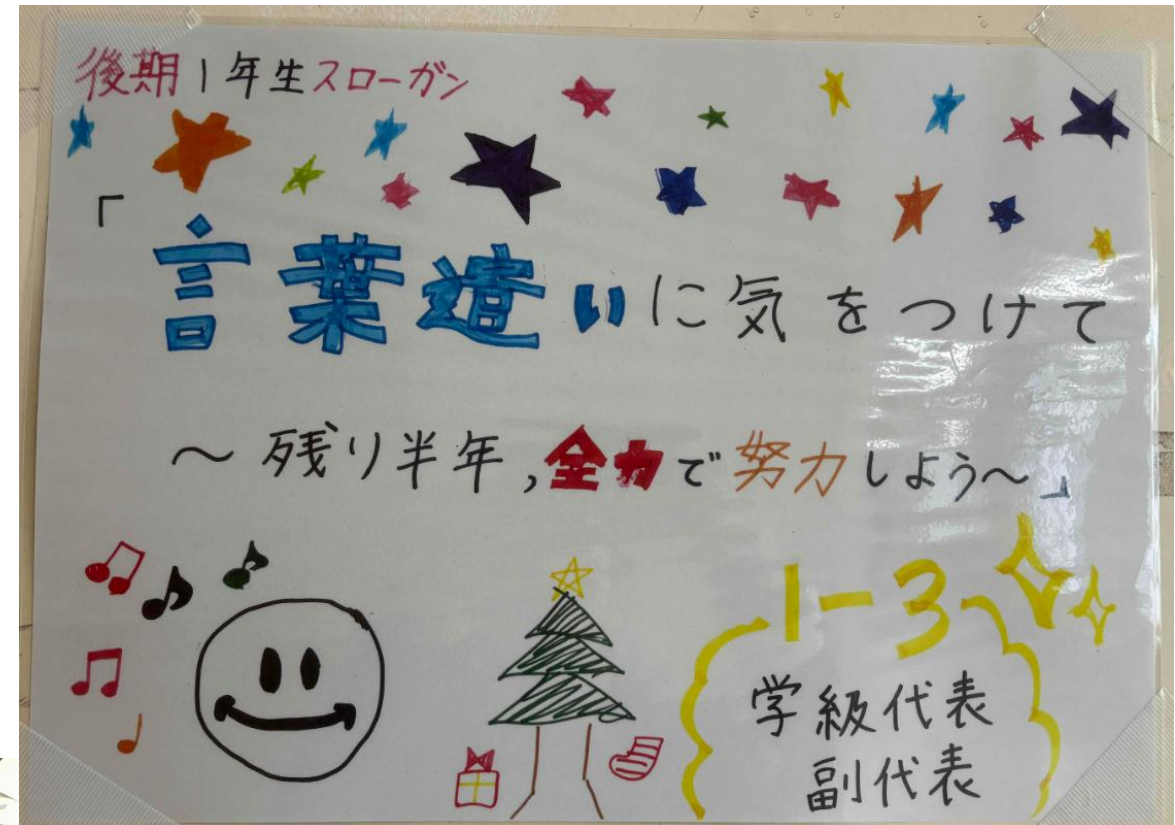 後期1年生スローガン
「言葉遣いに気をつけて
～残り半年,全力で努力しよう～」
1-3
学級代表
副代表